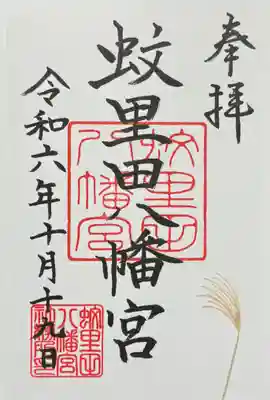 奉拝
蚊里田八幡宮
令和六年十月十九日
蚊里田
八幡宮
蚊里田
八幡宮